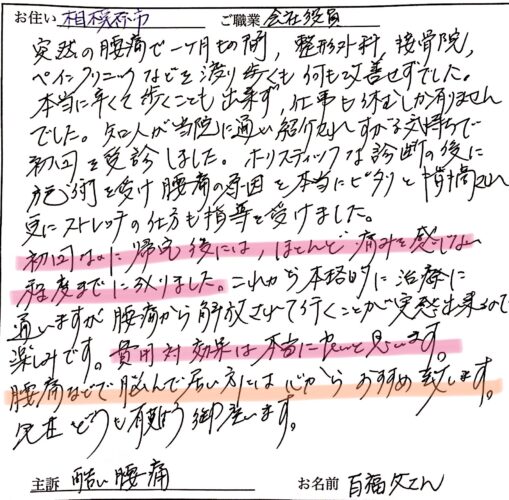 お住い 相模原市 ご職業 会社役員
突然の腰痛で一ヶ月もの間, 整形外科, 接骨院,
ペインクリニックなどを渡り歩くも何も改善せずでした。
本当に辛くて歩くことも出来ず, 仕事も休むしか有りません
でした。知人が当院に通い紹介されすがる気持ちで
初回を受診しました。ホリスティックな診断の後に
施術を受け腰痛の原因を本当にピタリと指摘され
更にストレッチの仕方も指導を受けました。
初回なのに帰宅後には, ほとんど痛みを感じない
程度までになりました。これから本格的に治療に
通いますが腰痛から解放されて行くことが実感出来るので
楽しみです。費用対効果は本当に良いと思います。
腰痛などで悩んで居る方には心からおすすめ致します。
どうも有難う御座います。
主訴 酷い腰痛 お名前 百福